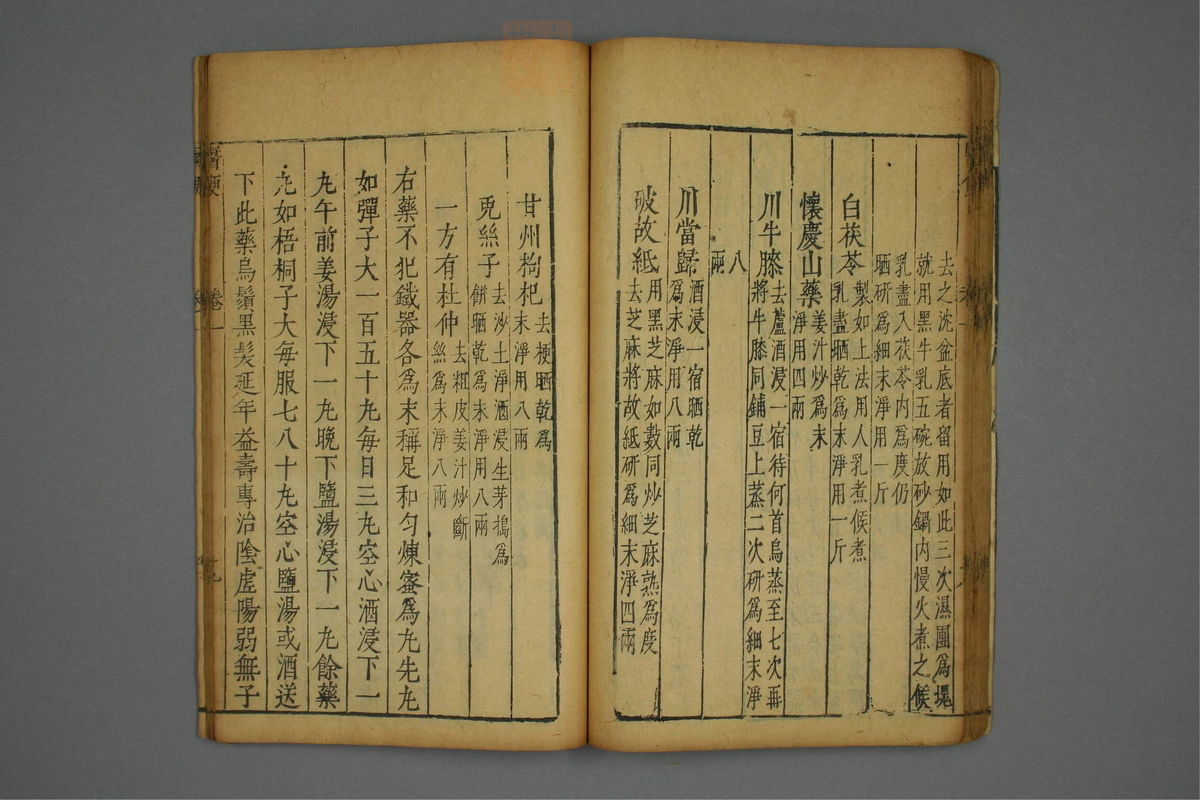 去之沈盆底者留用如此三次濕團爲塊
就用黑牛乳五碗放砂鍋內慢火煮之候
乳盡入茯苓內爲度仍
晒研爲細末淨用一斤
白茯苓製如上法用人乳煮候煮
乳盡晒乾爲末淨用一斤
懷慶山藥姜汁炒爲末
淨用四兩
川牛膝去蘆酒浸一宿待何首烏蒸至七次再
將牛膝同鋪豆上蒸二次研爲細末淨
八
兩
川當歸酒浸一宿晒乾
爲末淨用八兩
破故紙用黑芝麻如數同炒芝麻熟爲度
去芝麻將故紙研爲細末淨四兩
甘州枸杞去梗晒乾爲
末淨用八兩
兎絲子去沙土淨酒浸生芽搗爲
餅晒乾爲末淨用八兩
一方有杜仲去粗皮姜汁炒斷
絲爲末淨八兩
右藥不犯鐵器各爲末稱足和匀煉蜜爲丸先丸
如彈子大一百五十丸每日三丸空心酒浸下一
丸午前姜湯浸下一丸晚下鹽湯浸下一丸餘藥
丸如梧桐子大每服七八十丸空心鹽湯或酒送
下此藥烏鬚黑髮延年益壽專治陰虛陽弱無子
卷一